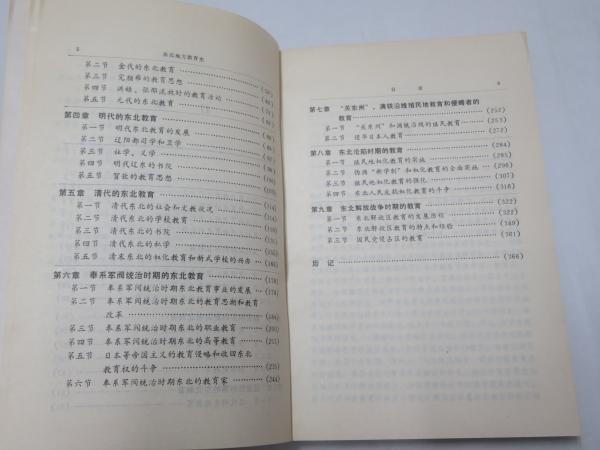 2 东北地方教育史
第二节 金代的东北教育
第三节 完颜雍的教育思想
第四节 洪皓、张邵流放时的教育活动
第五节 元代的东北教育
第四章 明代的东北教育
第一节 明代东北教育的发展
第二节 辽阳都司学和卫学
第三节 社学、义学
第四节 明代辽东的书院
第五节 贺钦的教育思想
第五章 清代的东北教育
第一节 清代东北的社会和文教状况
第二节 清代东北的学校教育
第三节 清代东北的书院
第四节 清代东北的私学
第五节 清末东北的奴化教育和新式学校的兴办
第六章 奉系军阀统治时期的东北教育
第一节 奉系军阀统治时期东北教育事业的发展
第二节 奉系军阀统治时期东北的教育思潮和教育
改革
第三节 奉系军阀统治时期东北的职业教育
第四节 奉系军阀统治时期东北的高等教育
第五节 日本等帝国主义的教育侵略和收回东北
教育权的斗争 (235)
第六节 奉系军阀统治时期东北的教育家 (244)
目录
第七章 “关东州”、满铁沿线殖民地教育和侵略者的
教育 (252)
第一节 “关东州”和满铁沿线的殖民教育 (253)
第二节 侵华日本人教育 (272)
第八章 东北沦陷时期的教育 (284)
第一节 殖民地奴化教育的实施 (285)
第二节 伪满“新学制”和奴化教育的全面实施 (296)
第三节 殖民地奴化教育的强化 (307)
第四节 东北人民反抗奴化教育的斗争 (316)
第九章 东北解放战争时期的教育 (322)
第一节 东北解放区教育的发展历程 (322)
第二节 东北解放区教育的特点和经验 (349)
第三节 国民党侵占区的教育 (361)
后记 (366)